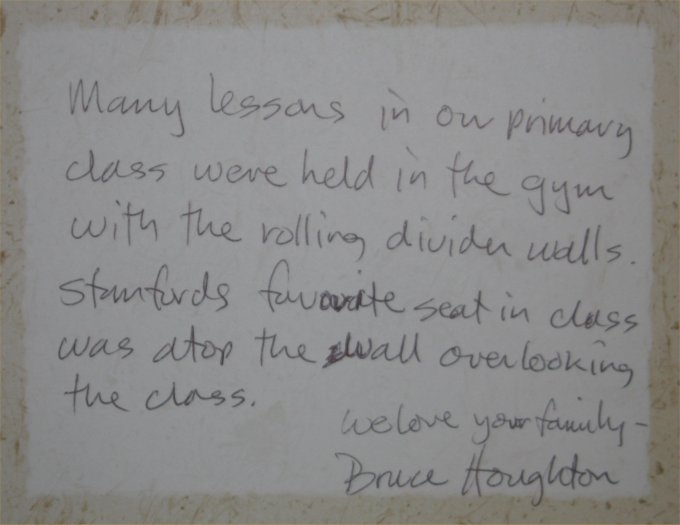 Many lessons in our primary
class were held in the gym
with the rolling divider walls.
Stanfords favorite seat in class
was atop the wall overlooking
the class.
We love your family -
Bruce Houghton